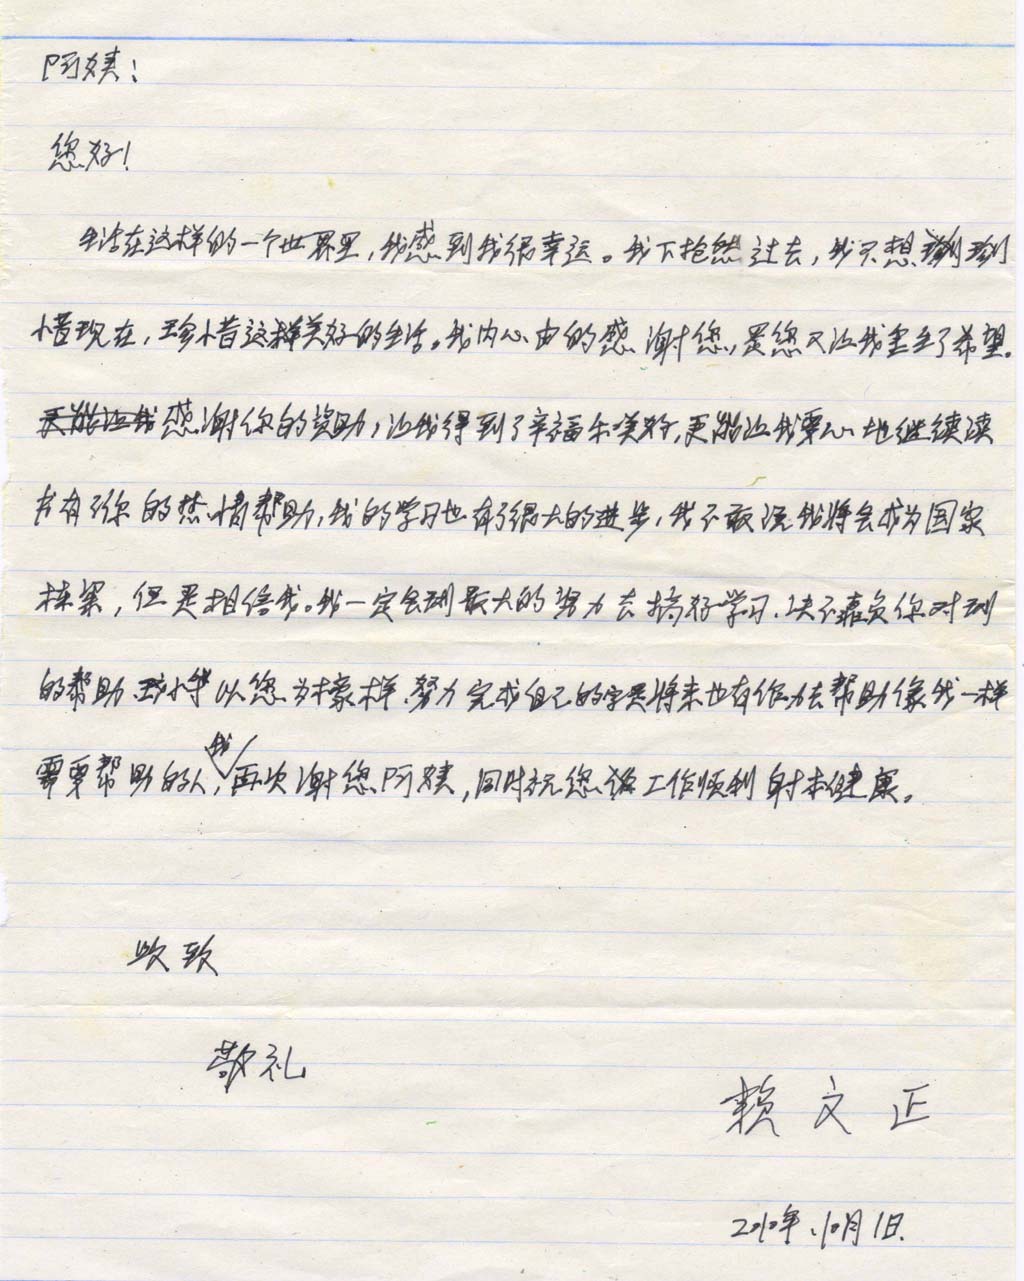 阿姨！
您好！
生活在这样的一个世界里，我感到我很幸运。我不抱怨过去，我只想珍
惜现在，珍惜这样美好的生活。我内心由的感谢您，是您又让我重生了希望。
感谢你的资助，让我得到了幸福与美好，更能让我安心地继续读
书有了你的热情帮助，我的学习也有了很大的进步，我不敢说我将会成为国家
栋梁，但是相信我。我一定会到最大的努力去搞好学习，决不辜负你对我
的帮助 我将以您为榜样，努力完成自己的学业将来也有能力去帮助像我一样
需要帮助的人，我再次谢您阿姨，同时祝您 工作顺利 身体健康。
此致
敬礼
赖文正
2010年10月1日.